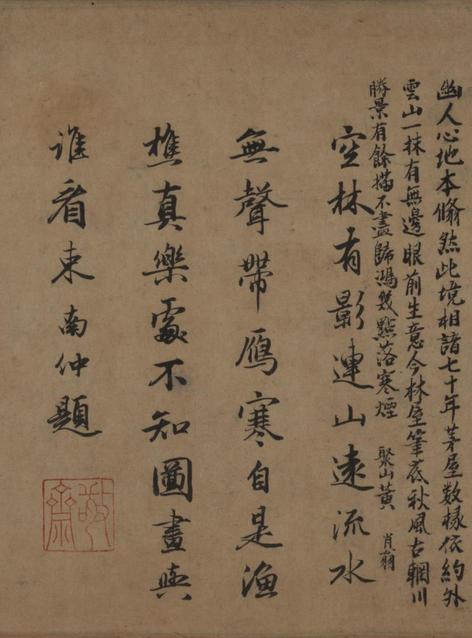 幽人心地本翛然此境相諳七十年茅屋数椽依約外
雲山一抹有無邊眼前生意今林屋筆底秋風古輞川
勝景有餘描不盡歸鴻幾點落寒煙　聚山黄肖翁
空林有影連山遠流水
無聲帶鴈寒自是漁
樵真樂處不知圖畫與
誰看東南仲題
敬齋